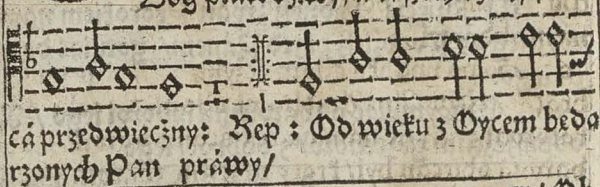 cá przedwiecżny: Rep: Od wieku z Oycem będą
rzonych Pan práwy/